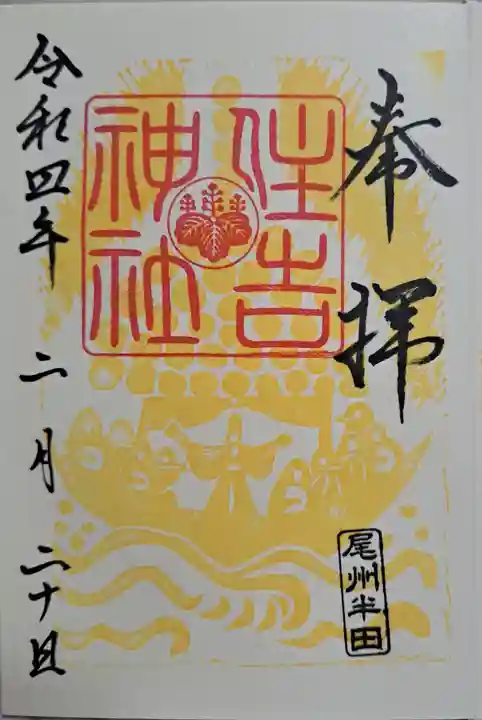 奉拝
住吉
神社
尾州半田
令和四年 二月 二十日